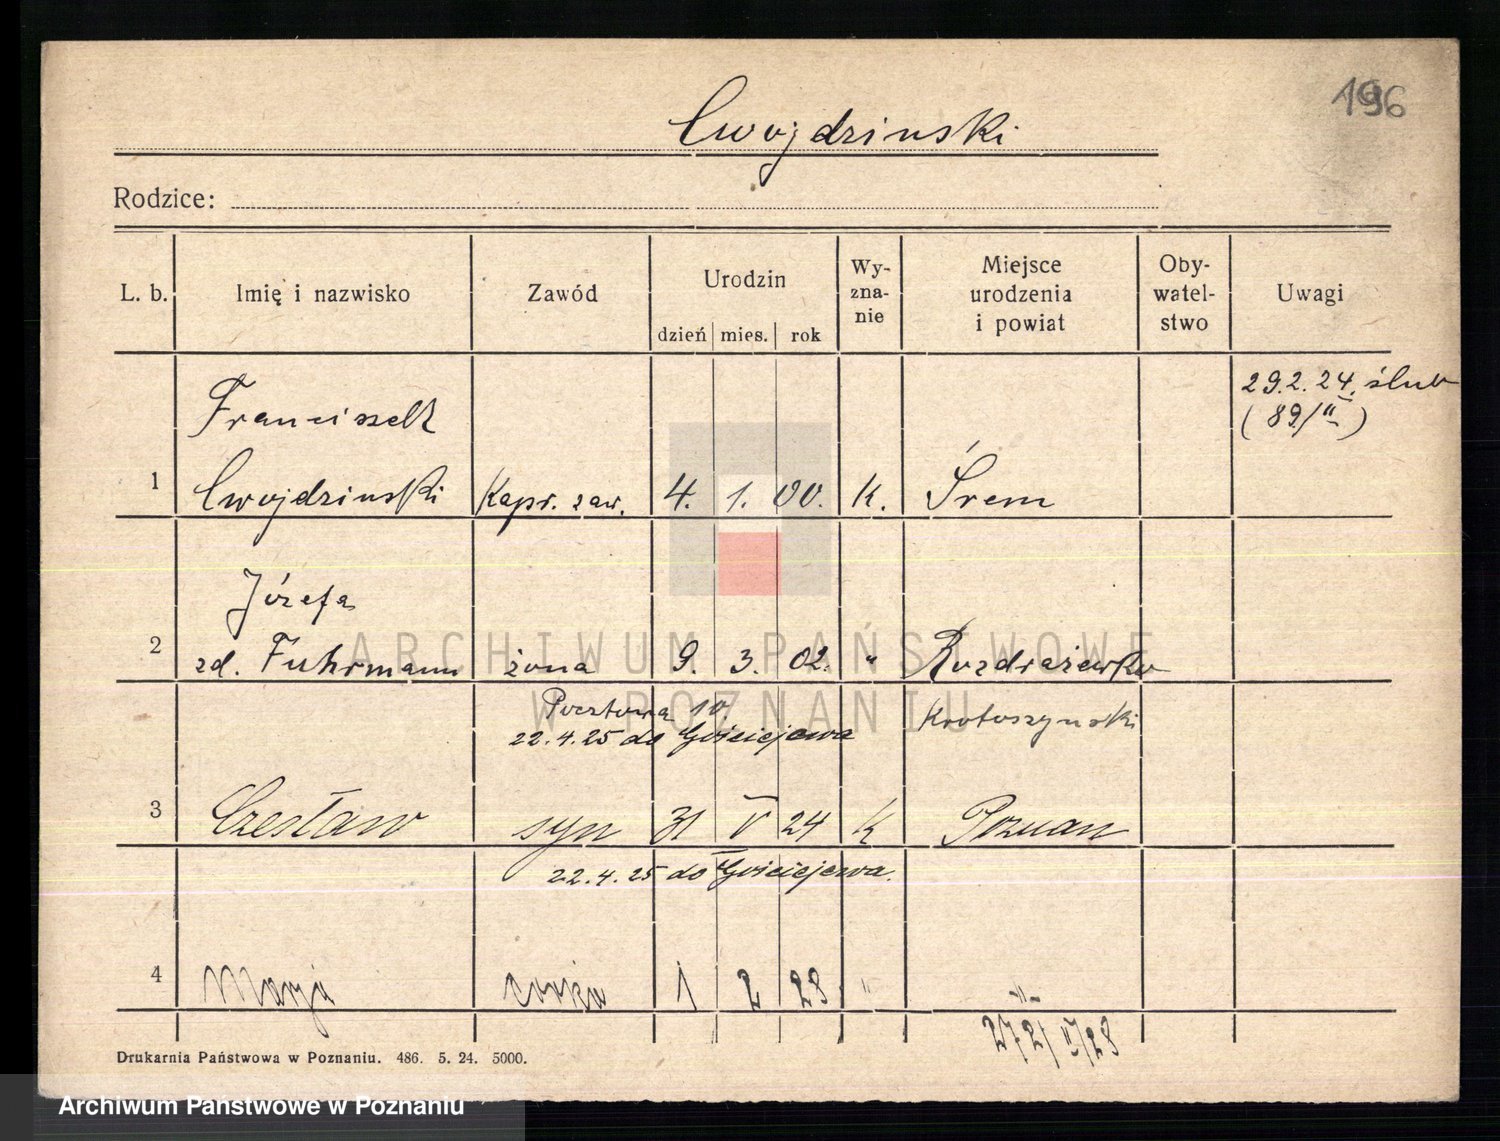 196
Cwojdzinski
Rodzice:
L. b.
Imię i nazwisko
Zawód
Urodzin
dzień mies. rok
Wy-
zna-
nie
Miejsce
urodzenia
i powiat
Oby-
watel-
stwo
Uwagi
29.2.24. ślub
(89/II)
Franciszek
1 Cwojdzinski Kapr. zaw. 4. 1. 00. K. Śrem
Józefa
2 zd. Fuhrmann żona 9. 3. 02. " Rozdrażewko
Pocztowa 10. Krotoszynski
22.4.25 do Gościejewa
3 Czesław syn 31 V 24 K Poznan
22.4.25 do Gościejewa.
4 Marja córka 1 2 28 " -"-
Drukarnia Państwowa w Poznaniu. 486. 5. 24. 5000.
ARCHIWUM PAŃSTWOWE
W POZNANIU
Archiwum Państwowe w Poznaniu